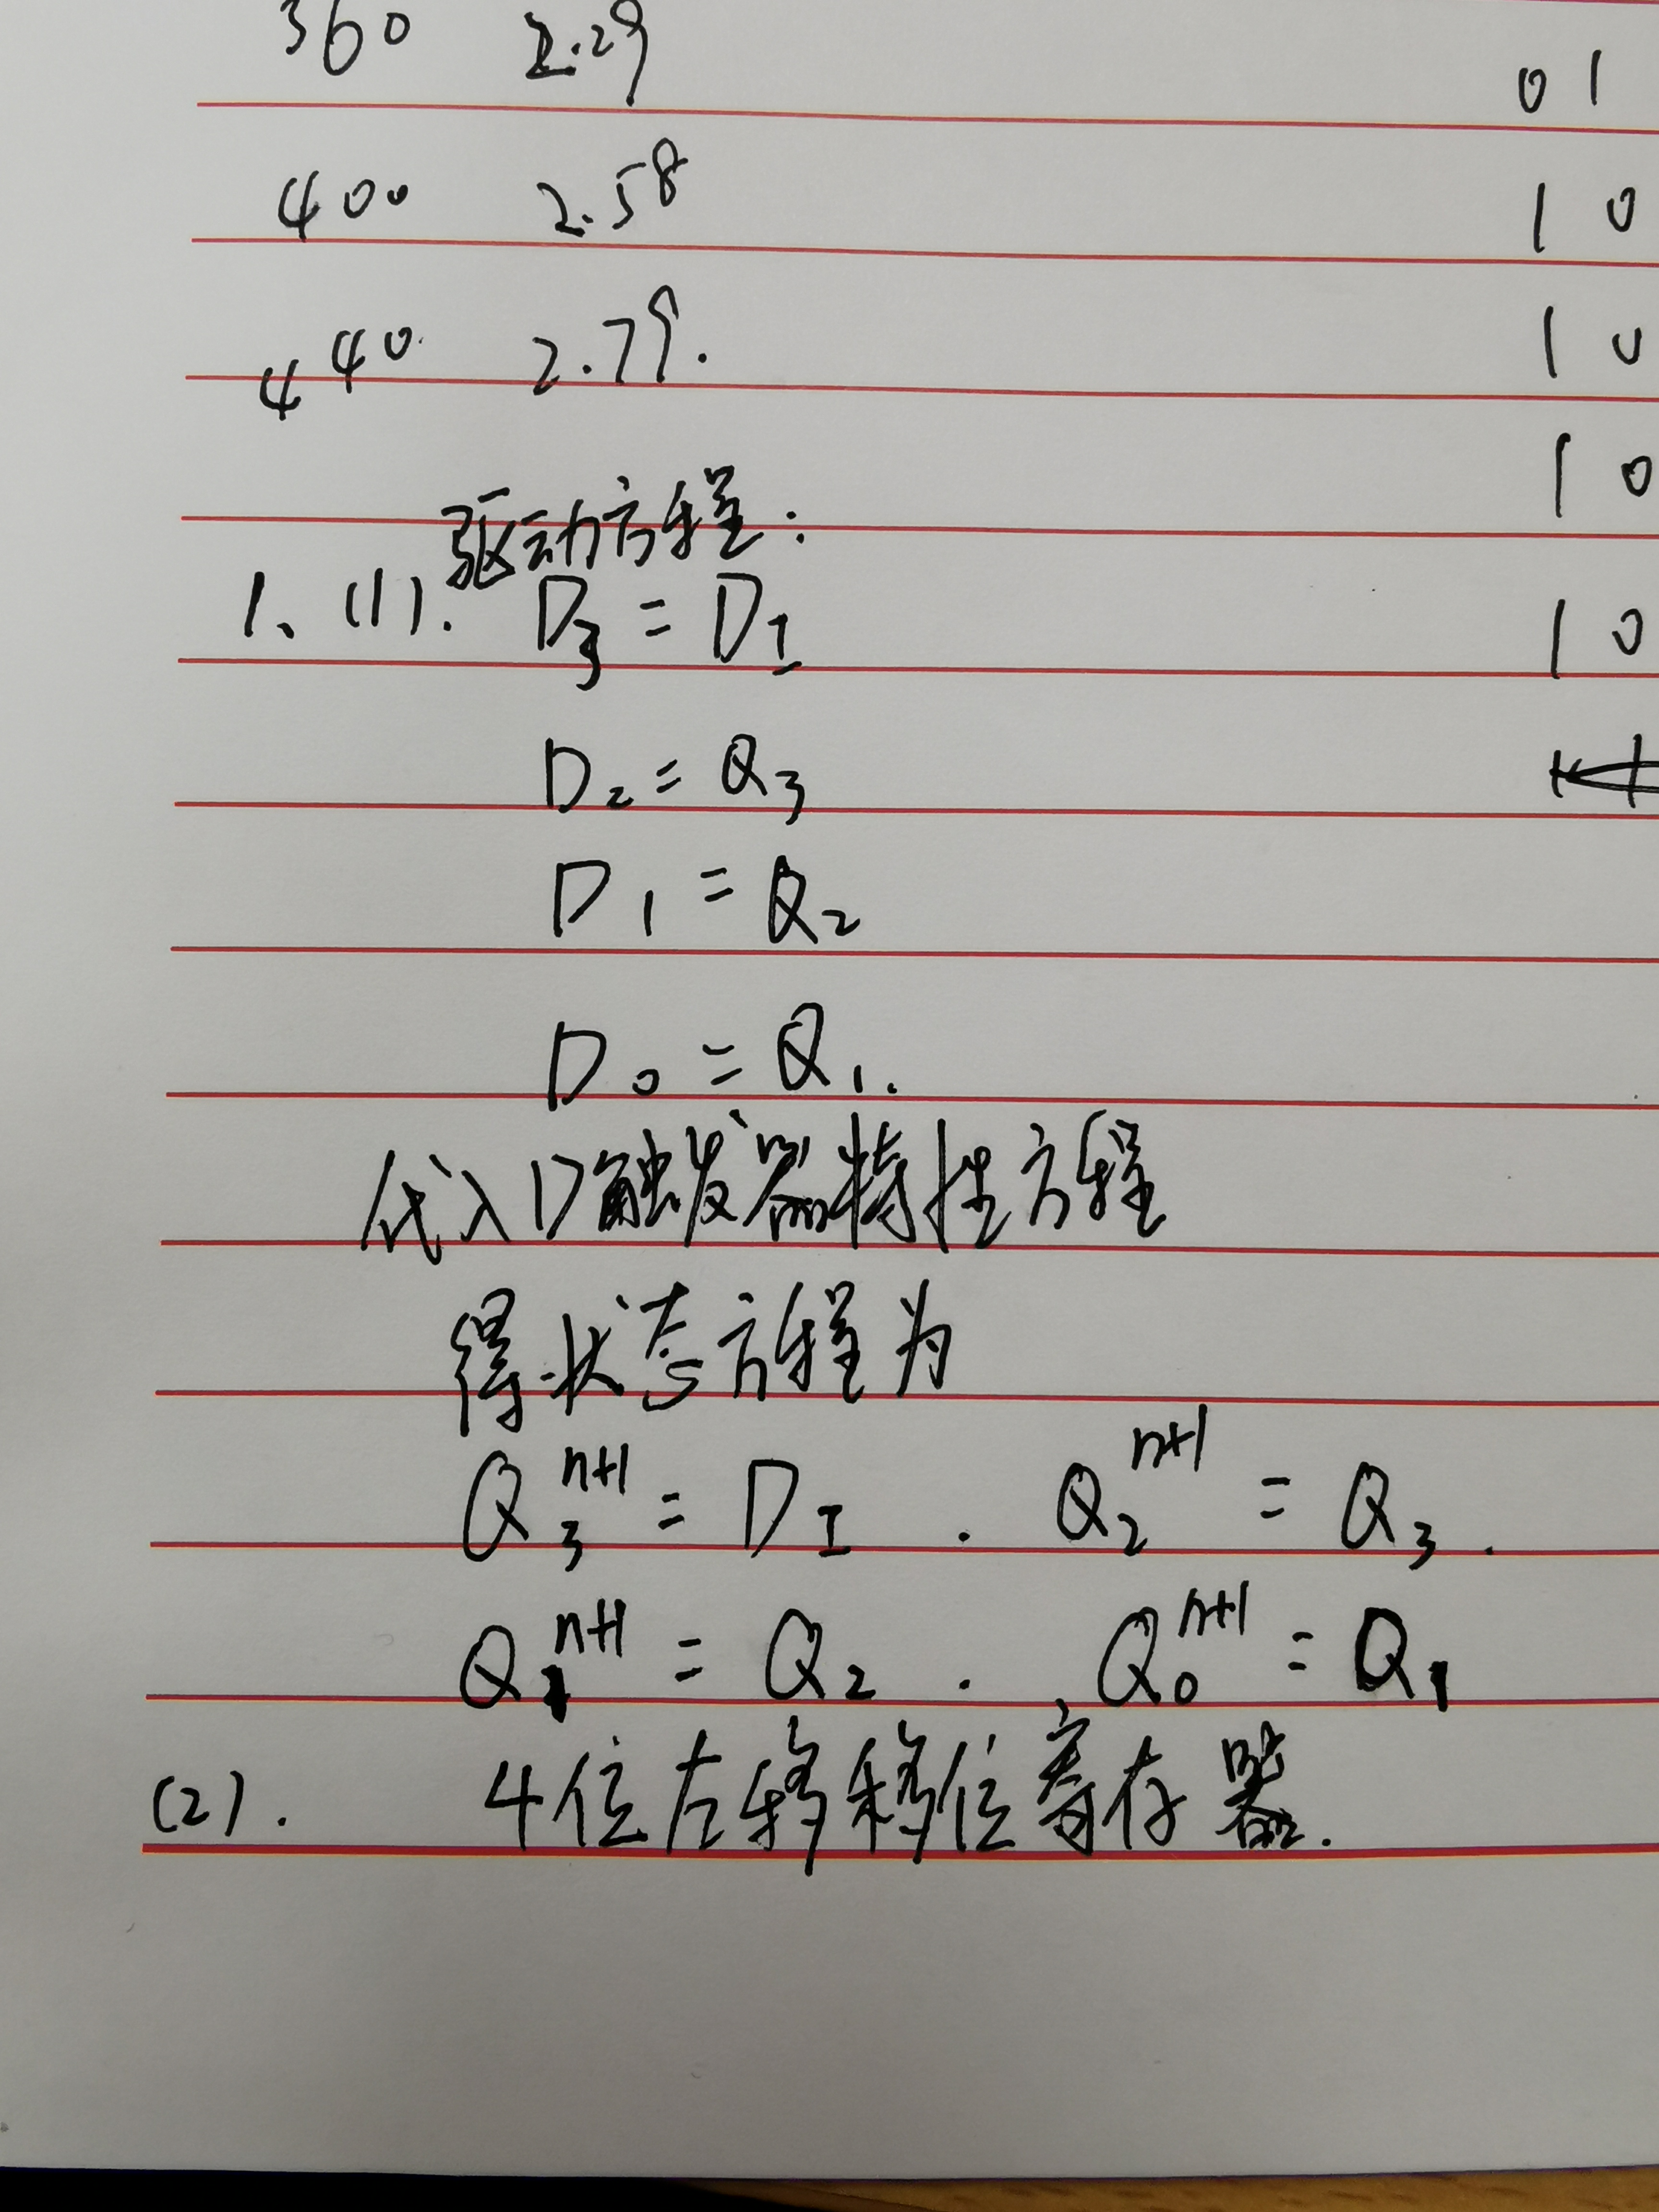 360 2.29
400 2.58
440. 2.79.
驱动方程:
1、(1). D₃ = D_I
D₂ = Q₃
D₁ = Q₂
D₀ = Q₁.
代入D触发器特性方程
得状态方程为
Q₃ⁿ⁺¹ = D_I . Q₂ⁿ⁺¹ = Q₃.
Q₁ⁿ⁺¹ = Q₂ . , Q₀ⁿ⁺¹ = Q₁
(2). 4位左移移位寄存器.
0 1
1 0
1 0
1 0
1 0